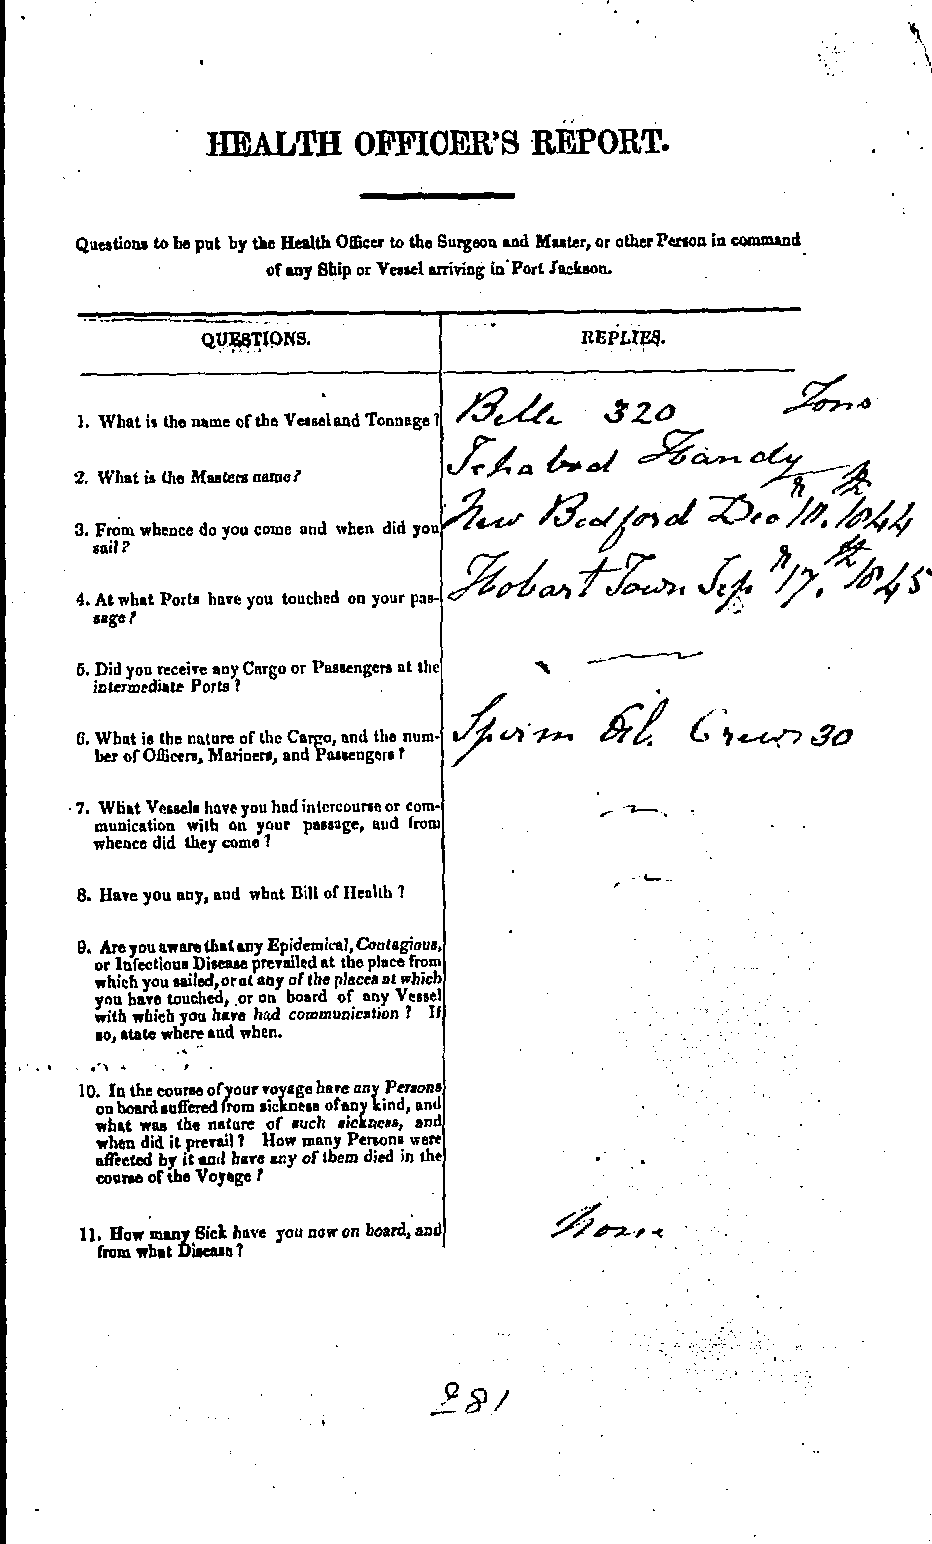 HEALTH OFFICER'S REPORT.
Questions to be put by the Health Officer to the Surgeon and Master, or other Person in command
of any Ship or Vessel arriving in Port Jackson.
QUESTIONS. REPLIES.
1. What is the name of the Vessel and Tonnage? Belle 320 Tons
2. What is the Masters name? Ichabod Handy
3. From whence do you come and when did you New Bedford Decr 10th 1844
sail?
4. At what Ports have you touched on your pas- Hobart Town Sepr 17th 1845
sage?
5. Did you receive any Cargo or Passengers at the —
intermediate Ports?
6. What is the nature of the Cargo, and the num- Sperm Oil. Crew 30
ber of Officers, Mariners, and Passengers?
7. What Vessels have you had intercourse or com- —
munication with on your passage, and from
whence did they come?
8. Have you any, and what Bill of Health? —
9. Are you aware that any Epidemical, Contagious,
or Infectious Disease prevailed at the place from
which you sailed, or at any of the places at which
you have touched, or on board of any Vessel
with which you have had communication? If
so, state where and when.
10. In the course of your voyage have any Persons
on board suffered from sickness of any kind, and
what was the nature of such sickness, and
when did it prevail? How many Persons were
affected by it and have any of them died in the
course of the Voyage?
11. How many Sick have you now on board, and None
from what Disease?
281